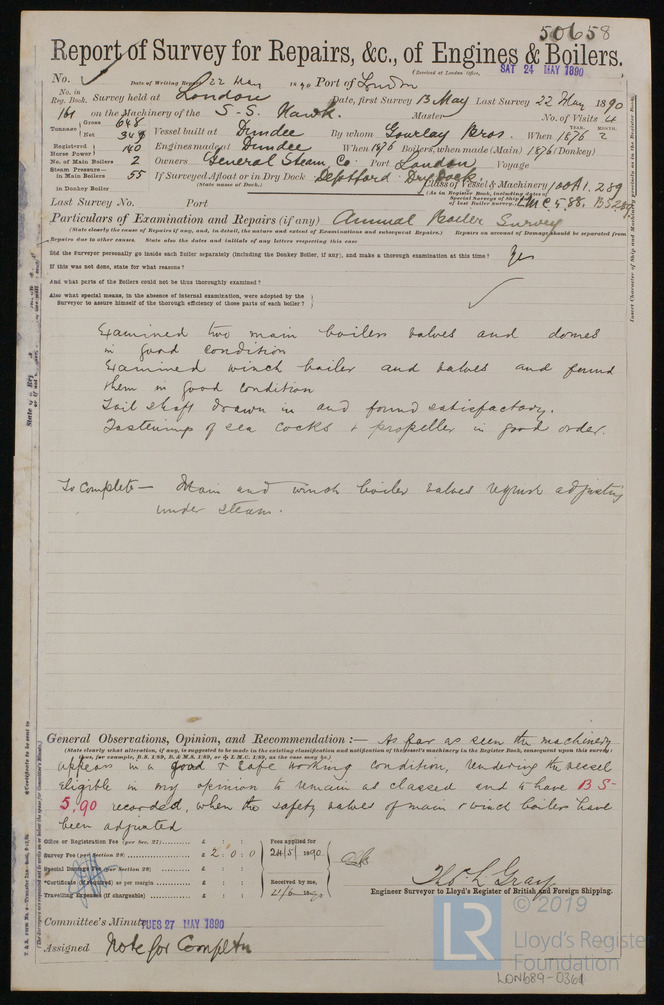 50658
Report of Survey for Repairs, &c., of Engines & Boilers.
(Received at London Office, SAT 24 MAY 1890
No. Date of Writing Report 22 May 1890 Port of London
No. in Reg. Book. Survey held at London Date, first Survey 13 May Last Survey 22 May 1890
161 on the Machinery of the S-S. Hawk. Master No. of Visits 4
Tonnage Gross 648 Net 349 Vessel built at Dundee By whom Gourlay Bros. When 1876 2 YEAR. MONTH.
Registered Horse Power 140 Engines made at Dundee When 1876 Boilers, when made (Main) 1876 (Donkey)
No. of Main Boilers 2 Owners General Steam Co Port London Voyage
Steam Pressure in Main Boilers 55 If Surveyed Afloat or in Dry Dock Deptford Dry Dock.
(State name of Dock.) Class of Vessel & Machinery 100A1. 2,89
in Donkey Boiler (As in Register Book, including dates of Special Surveys of Ship & of last Boiler Survey.) LMC 5.88. BS 2,89
Last Survey No. Port
Particulars of Examination and Repairs (if any) Annual Boiler Survey
(State clearly the cause of Repairs if any, and, in detail, the nature and extent of Examinations and subsequent Repairs.) Repairs on account of Damage should be separated from
Repairs due to other causes. State also the dates and initials of any letters respecting this case
Did the Surveyor personally go inside each Boiler separately (including the Donkey Boiler, if any), and make a thorough examination at this time? Yes
If this was not done, state for what reasons?
And what parts of the Boilers could not be thoroughly examined?
Also what special means, in the absence of internal examination, were adopted by the
Surveyor to assure himself of the thorough efficiency of those parts of each boiler?
Examined two main boilers valves and domes
in good condition
Examined winch boiler and valves and found
them in good condition
Tail shaft drawn in and found satisfactory.
Fastenings of sea cocks & propeller in good order.
To complete— Main and winch boiler valves require adjusting
under steam.
General Observations, Opinion, and Recommendation :— As far as seen the machinery
(State clearly what alteration, if any, is suggested to be made in the existing classification and notification of the vessel's machinery in the Register Book, consequent upon this survey:
thus, for example, B.S. 1/89, B. & M.S. 1/89, or L.M.C. 1/89, as the case may be.)
appears in a good & safe working condition, rendering the vessel
eligible in my opinion to remain as classed and to have BS-
5,90 recorded, when the safety valves of main & winch boilers have
been adjusted
Office or Registration Fee (per Sec. 27) £ : : Fees applied for
Survey Fee (per Section 28) £ 2 : 0 : 0 24/5/1890.
Special Damage Fee (per Section 28) £ : :
*Certificate (if required) as per margin £ : : Received by me,
Travelling Expenses (if chargeable) £ : :
Thos L Gray
Engineer Surveyor to Lloyd's Register of British and Foreign Shipping.
Committee's Minute TUES 27 MAY 1890
Assigned Note for Completn
LR © 2019
Lloyd's Register
Foundation
LON689-0361